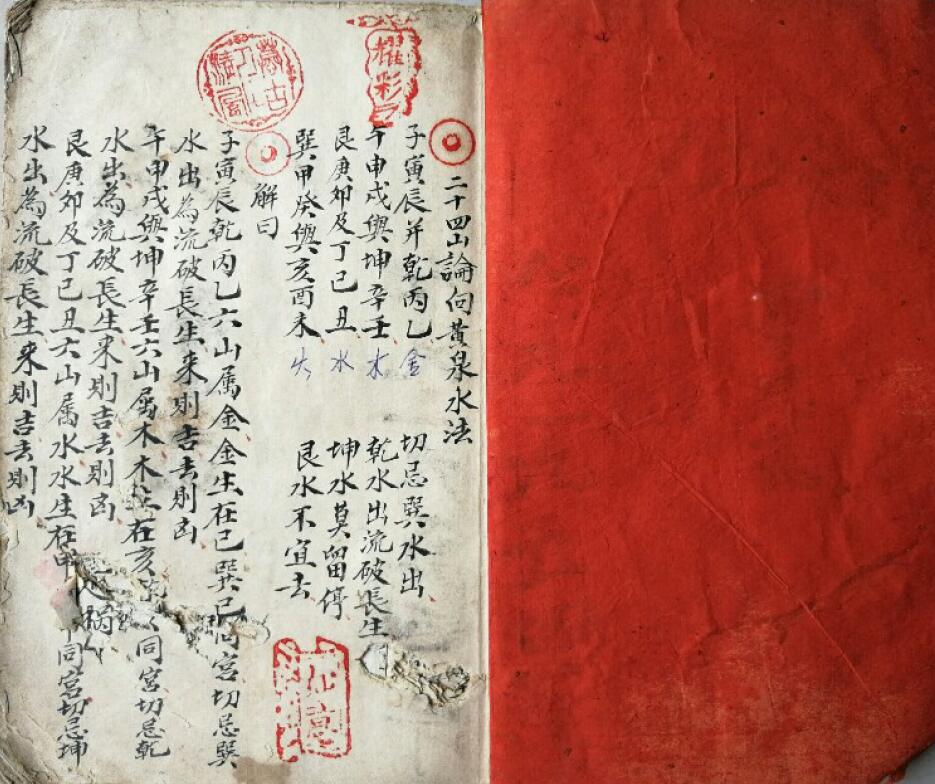 二十四山論向黃泉水法
子寅辰并乾丙乙 金 切忌巽水出
午申戌與坤辛壬 木 乾水出流破長生
艮庚卯及丁巳丑 水 坤水莫留停
巽甲癸與亥酉未 火 艮水不宜去
解曰
子寅辰乾丙乙六山属金金生在巳巽巳同宮切忌巽
水出為流破長生来則吉去則凶
午申戌與坤辛壬六山属木木生在亥同宮切忌乾
水出為流破長生来則吉去則凶
艮庚卯及丁巳丑六山属水水生在申同宮切忌坤
水出為流破長生来則吉去則凶
耀彩